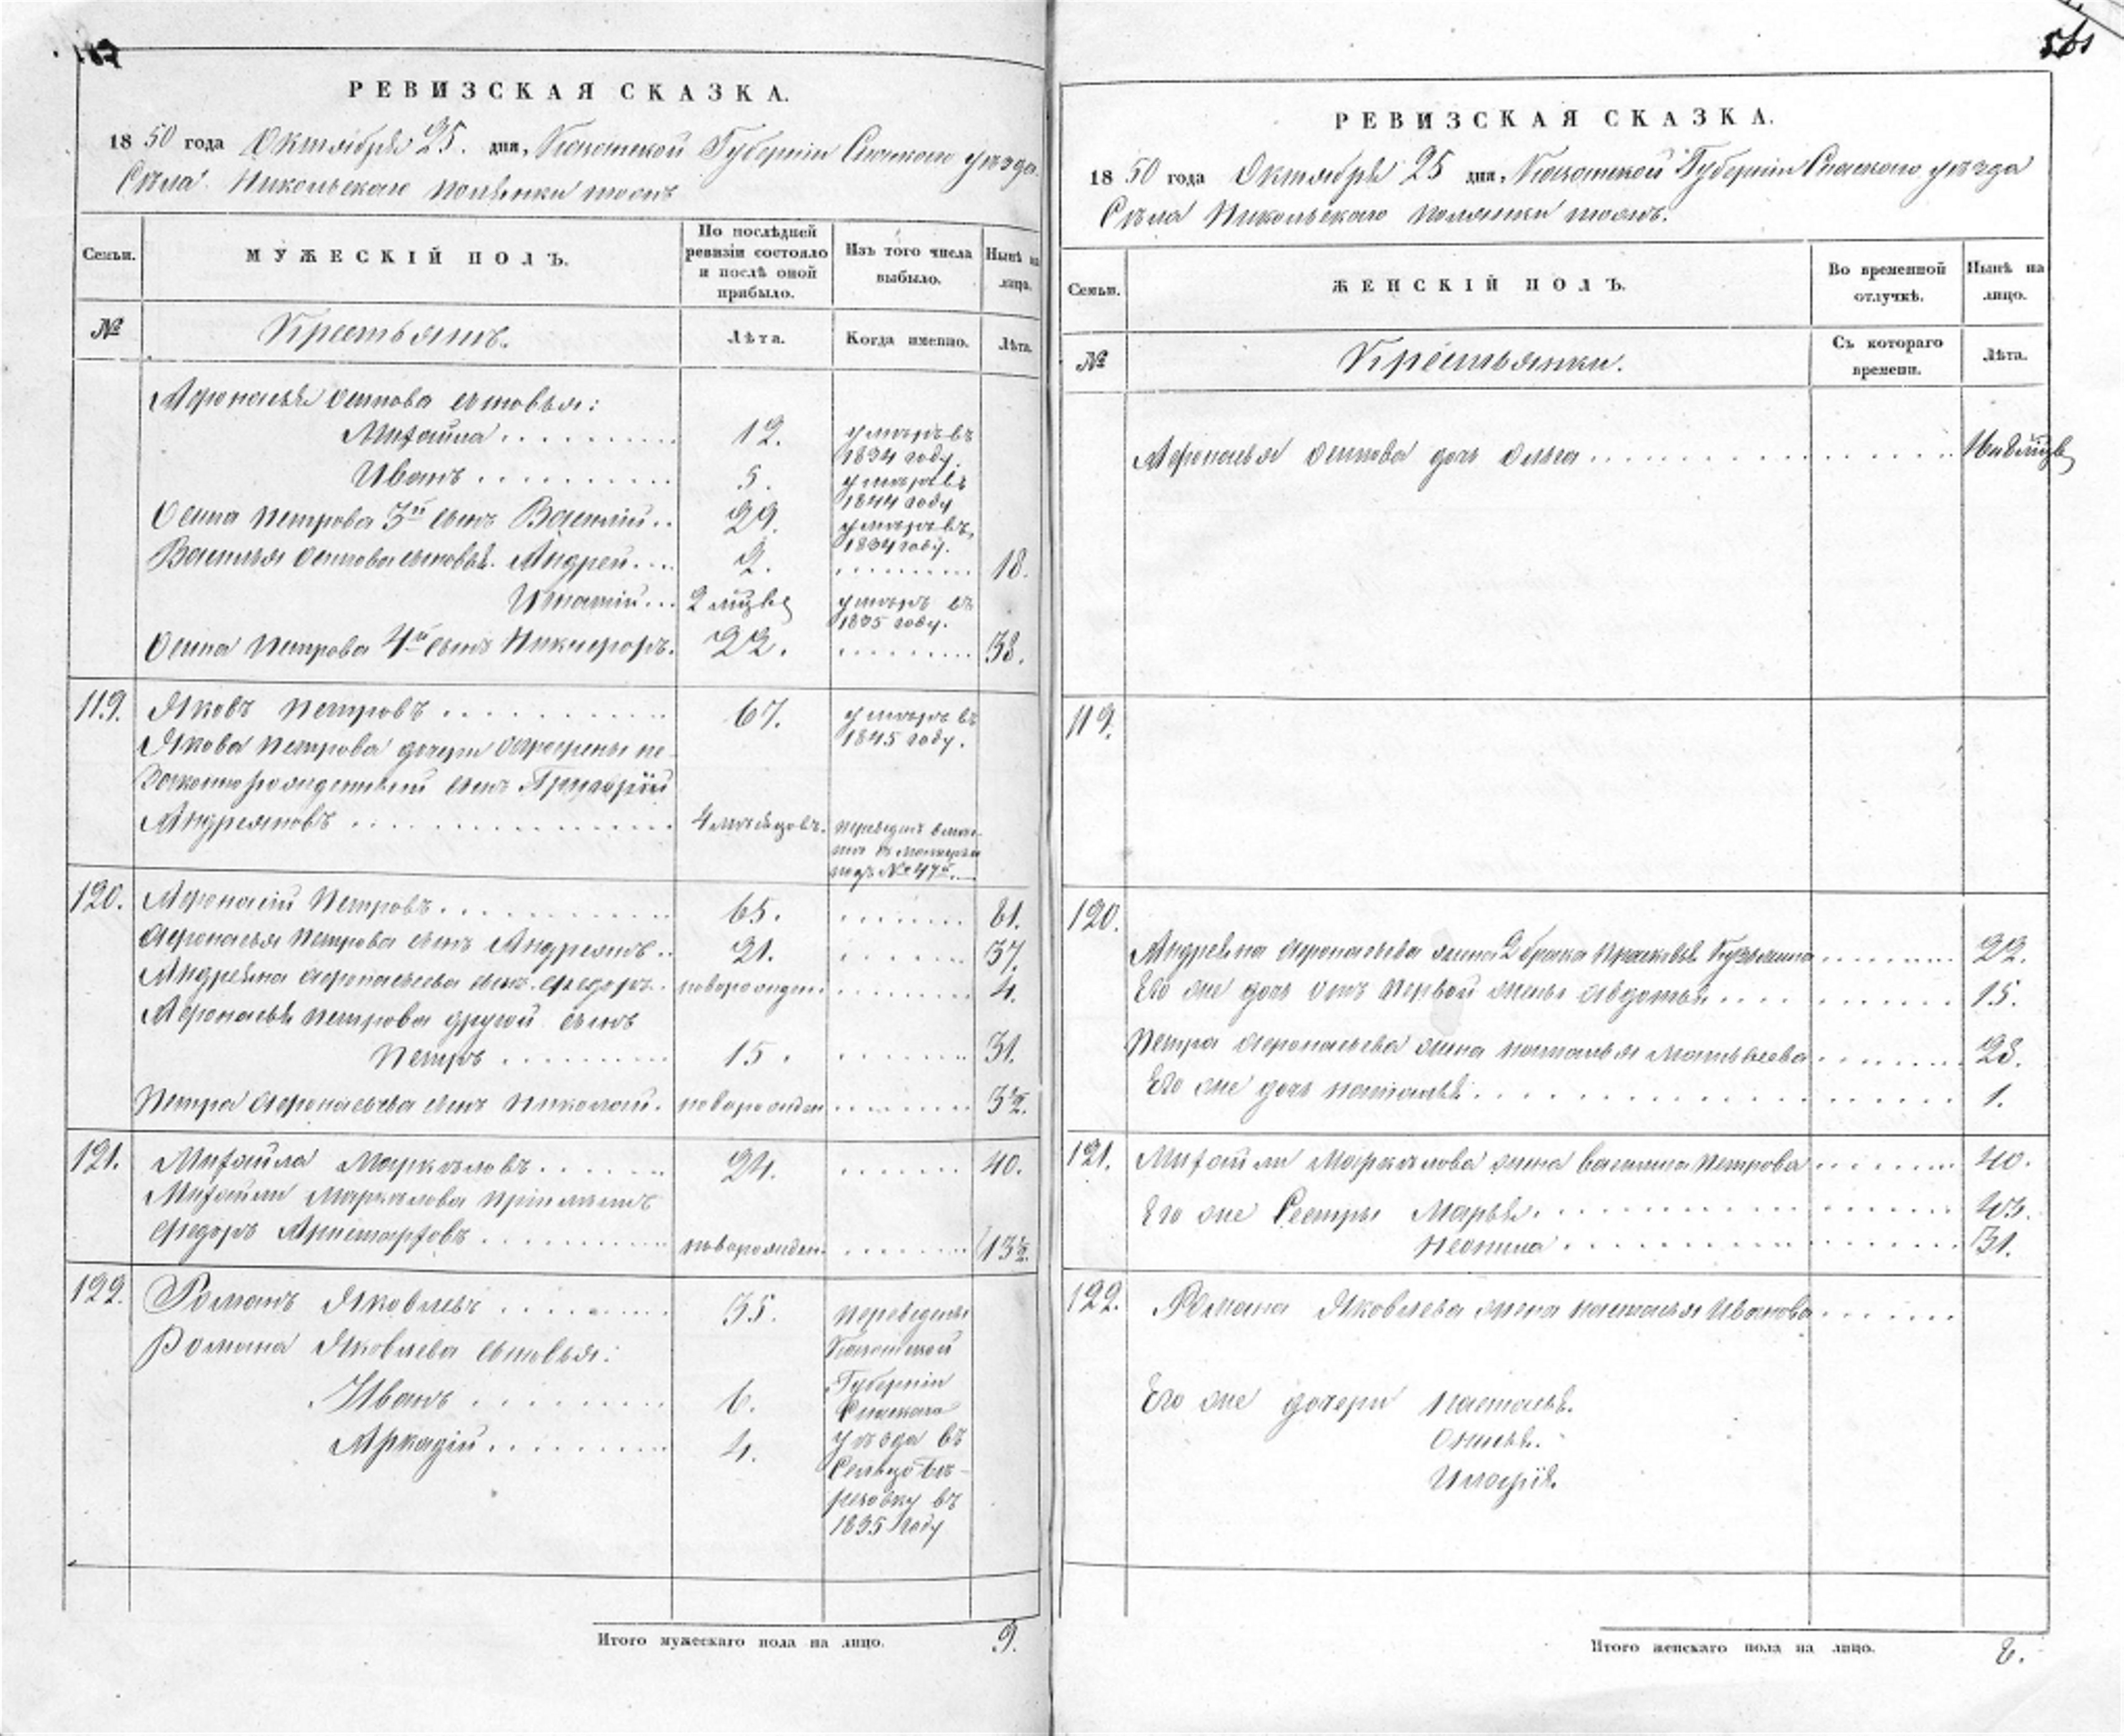 РЕВИЗСКАЯ СКАЗКА.
1850 года Октября 25. дня, Казанской Губерніи Спаскаго уѣзда
Села Никольскаго Полянки тожъ
Семьи. МУЖЕСКІЙ ПОЛЪ. По послѣдней ревизіи состояло и послѣ оной прибыло. Изъ того числа выбыло. Нынѣ на лицо.
№ Крестьянъ. Лѣта. Когда именно. Лѣта.
Афонасья Осипова сыновья:
Михайла 12. умеръ въ 1834 году.
Иванъ 5. умеръ въ 1844 году
Осипа Петрова 3й сынъ Василій 29. умеръ въ 1834 году.
Василья Осипова сыновья Андрей 2. 18.
Игнатій 2 мѣсяца умеръ въ 1835 году.
Осипа Петрова 4й сынъ Никифоръ. 22. 38.
119. Яковъ Петровъ 67. умеръ въ 1845 году.
Якова Петрова дочери Офросиньи не-
законнорожденный сынъ Григорій
Андреяновъ 4 мѣсяцовъ. подъ № 47
120. Афонасій Петровъ 65. 81.
Афонасья Петрова сынъ Андреянъ 21. 37.
Андреяна Афонасьева сынъ Федоръ новорожден. 4.
Афонасья Петрова другой сынъ
Петръ 15. 31.
Петра Афонасьева сынъ Николай. новорожден 3½.
121. Михайла Маркаловъ 24. 40.
Михайли Маркалова пріемышъ
Федоръ Аристарховъ новорожден. 13½.
122. Романъ Яковлевъ 35. Переведены
Романа Яковлева сыновья: Казанской
Иванъ 6. Губерніи Спаскаго
Аркадій 4. уѣзда въ
Сельцо Бе-
резовку въ
1835 году
Итого мужескаго пола на лицо. 9.
561
РЕВИЗСКАЯ СКАЗКА.
1850 года Октября 25 дня, Казанской Губерніи Спаскаго уѣзда
Села Никольскаго Полянки тожъ.
Семьи. ЖЕНСКІЙ ПОЛЪ. Во временной отлучкѣ. Нынѣ на лицо.
№ Крестьянки. Съ котораго времени. Лѣта.
Афонасья Осипова дочь Ольга
119.
120.
Андреяна Афонасьева жена 2 брака Прасковья Кузьмина 22.
Его же дочь отъ первой жены Авдотья 15.
Петра Афонасьева жена Наталья Матвѣева 28.
Его же дочь Наталья 1.
121. Михайли Маркалова жена Василиса Петрова 40.
Его же Сестры Марья 43.
Неонила 31.
122. Романа Яковлева жена Настасья Иванова
Его же дочери Настасья.
Онисья.
Итого женскаго пола на лицо. 8.